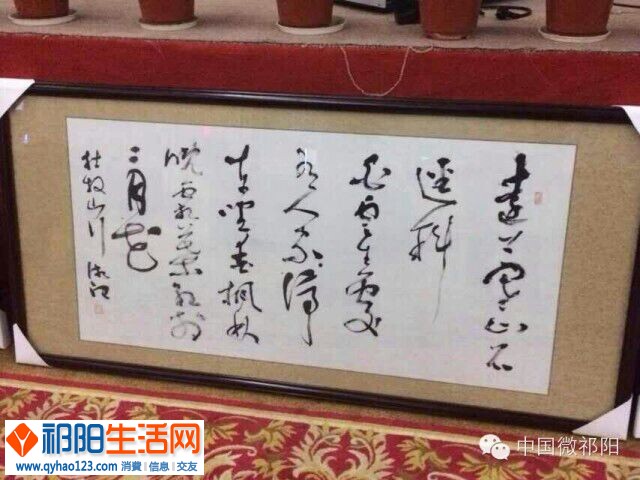 遠上寒山石
逕斜
白雲生處
有人家停
車坐愛楓林
晚霜葉紅於
二月花
杜牧山行
祁阳生活网
www.qyhao123.com 消費 | 信息 | 交友
中国微祁阳